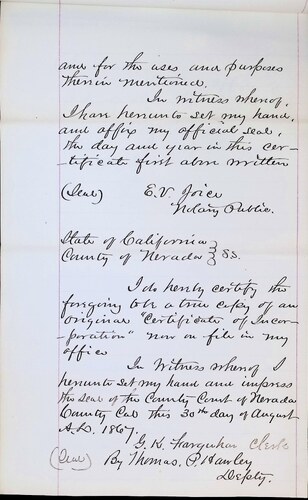 and for the uses and purposes
therein mentioned.
In witness whereof,
I have hereunto set my hand,
and affix my official seal,
the day and year in this cer-
-tificate first above written
(Seal) E. V. Joice
Notary Public.
State of California }
County of Nevada } S.S.
I do hereby certify the
foregoing to be a true copy of an
original "Certificate of Incor-
-poration" now on file in my
office
In Witness whereof I
hereunto set my hand and impress
the seal of the County Court of Nevada
County Cal this 30th day of August
A.D. 1867.
G. K. Farquhar Clerk
(Seal) By Thomas P. Hawley
Depty.